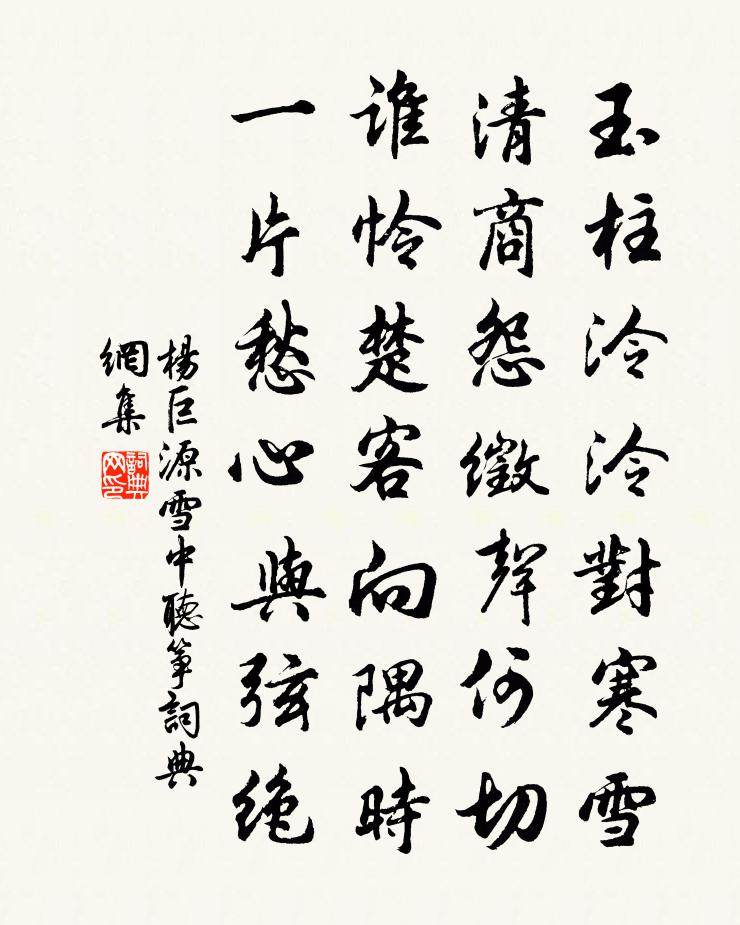 玉柱泠泠對寒雪
清商怨徵聲何切
誰憐楚客向隅時
一片愁心與弦絶
楊巨源雪中聽箏詞典
網集
詞典網印